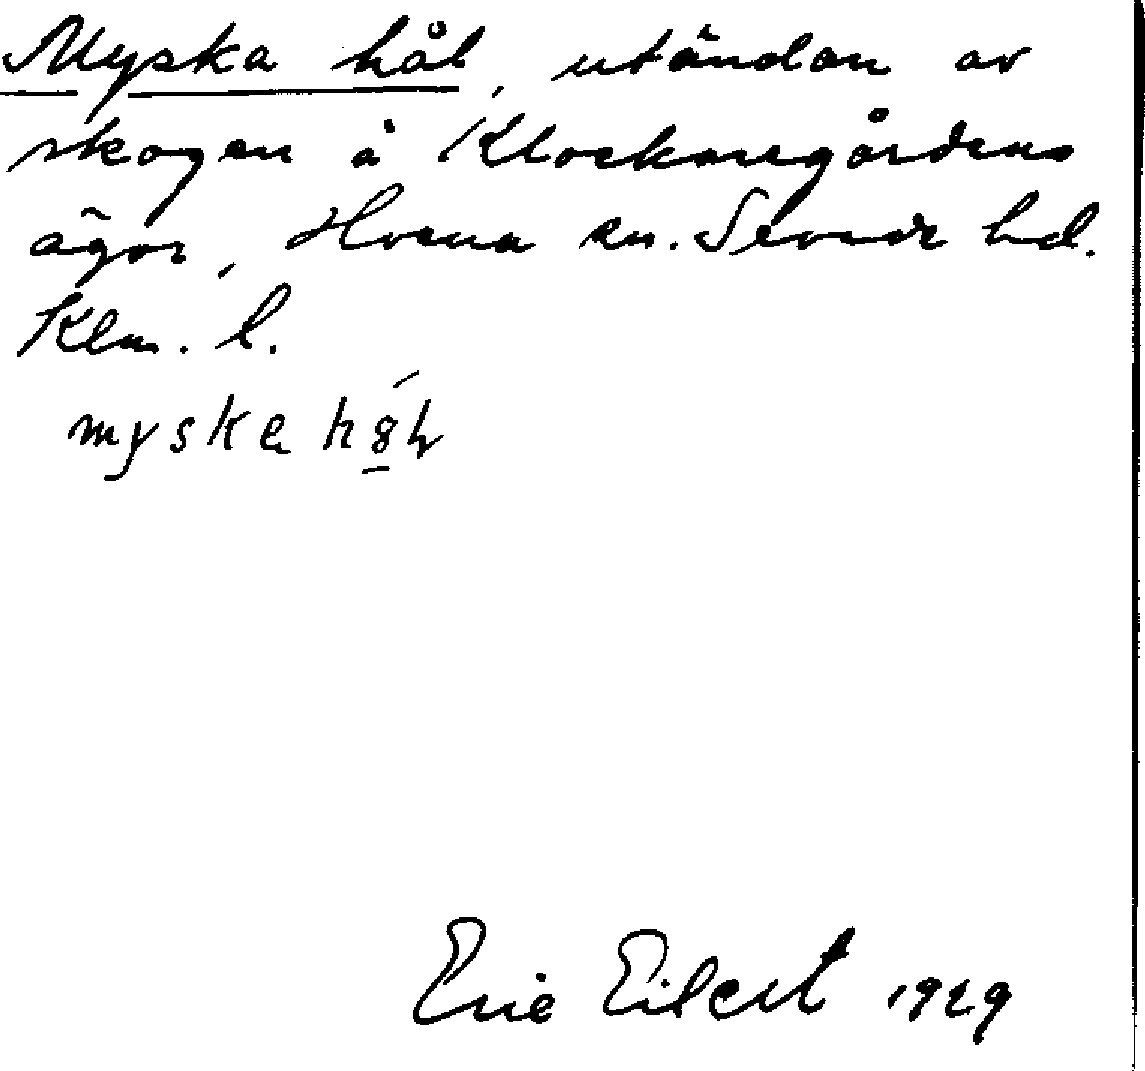 Myska hål, utändan av
skogen å Klockaregårdens
ägor, Hvena sn. Sevede hd.
Klm. l.
myska
Eric Eilert 1929